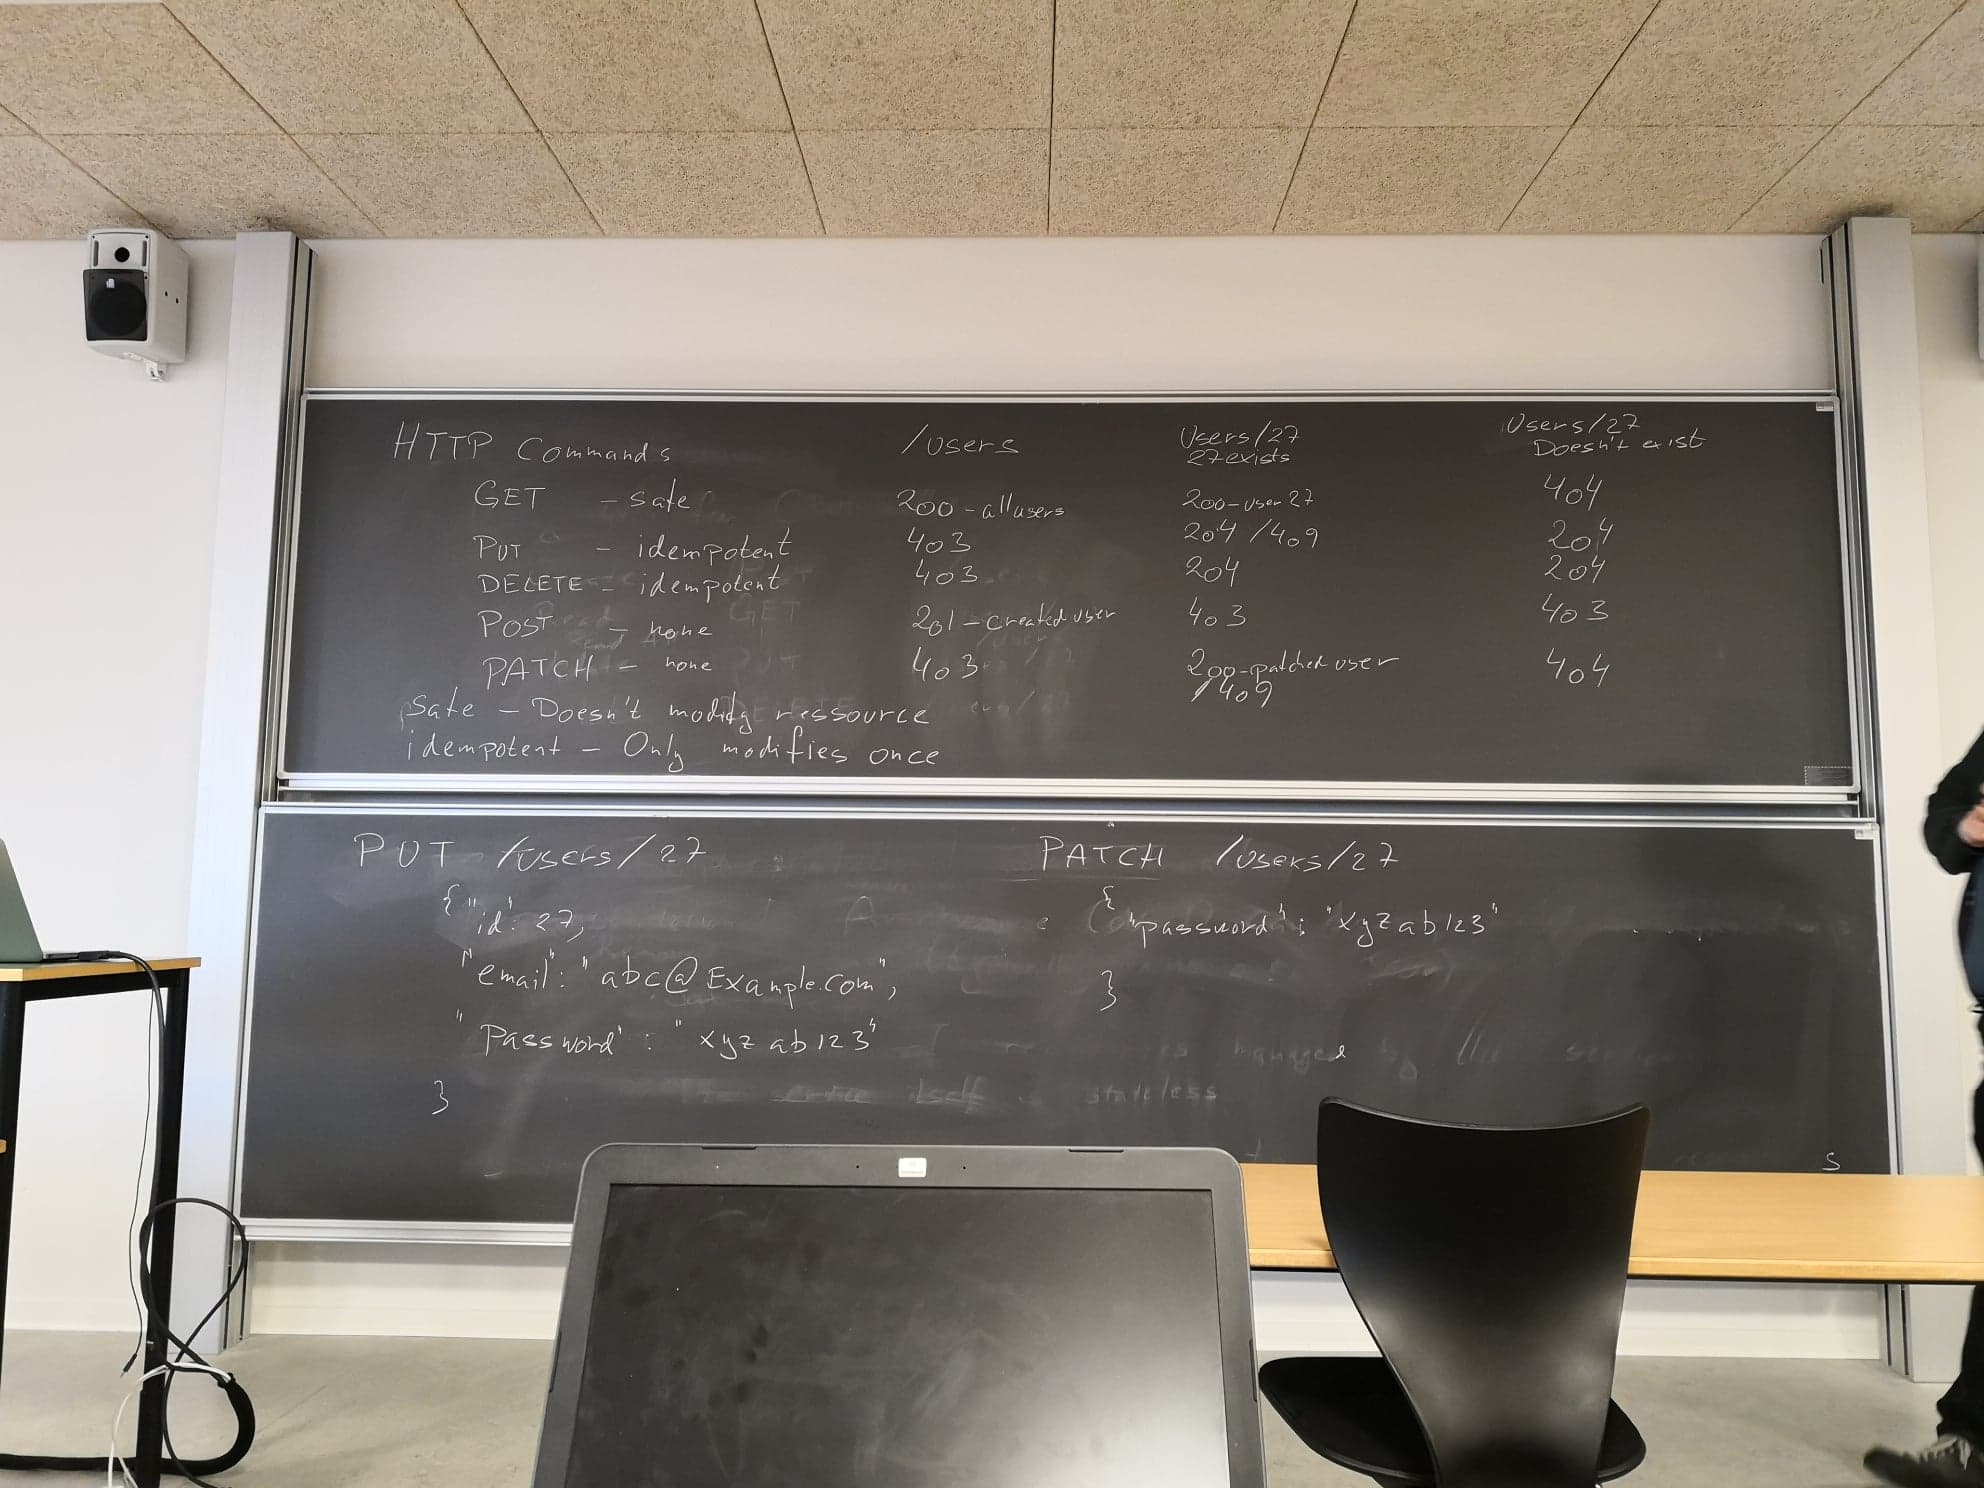 HTTP Commands /users Users/27 Users/27
27 exists Doesn't exist
GET - safe 200 - all users 200 - user 27 404
PUT - idempotent 403 204 / 409 204
DELETE - idempotent 403 204 204
POST - none 201 - created user 403 403
PATCH - none 403 200 - patched user 404
/ 409
Safe - Doesn't modify ressource
idempotent - Only modifies once
PUT /users/27
{ "id": 27,
"email": "abc@Example.com",
"Password": "xyzab123"
}
PATCH /users/27
{
"password": "xyzab123"
}
managed by the
itself stateless
s